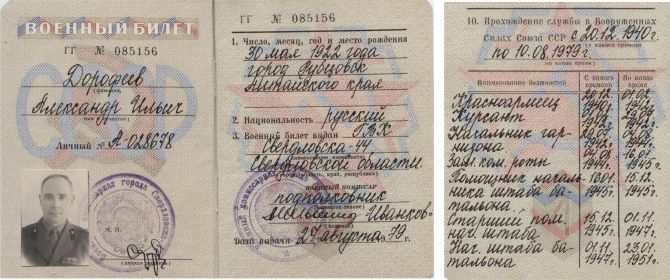 ВОЕННЫЙ БИЛЕТ
ГГ № 085156
Дорофеев
(фамилия)
Александр Ильич
(имя и отчество)
Личный № А-028678
М. П.
ГГ № 085156
1. Число, месяц, год и место рождения
30 мая 1922 года
город Рубцовск
Алтайского края
2. Национальность русский
3. Военный билет выдан ГВК
Свердловска-44
Свердловской области
военный комиссар
подполковник
Иванков
Дата выдачи 27 августа 79 г.
10. Прохождение службы в Вооруженных
Силах Союза ССР с 20.12.1940г.
(с какого времени)
по 10.08.1979г.
(по какое время)
Наименование должностей
С какого времени
По какое время
Красноармеец
Курсант
Начальник гар-
низона
Зам. ком. роты
Помощник началь- 16.01. 15.12.
ника штаба ба- 1945г. 1945г.
тальона
Старший пом. 15.12. 01.11.
нач. штаба 1945г. 1947г.
Нач. штаба ба- 01.11. 23.01.
тальона 1947г. 1951г.